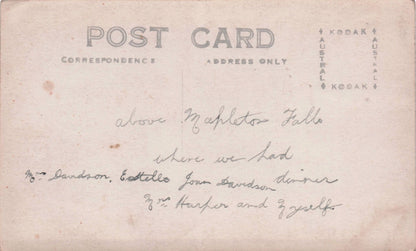 POST CARD
CORRESPONDENCE
ADDRESS ONLY
KODAK
AUSTRAL
AUSTRAL
KODAK
above Mapleton Falls
where we had
Mrs Davidson, Estelle Joan Davidson dinner
Mrs Harper and Myself